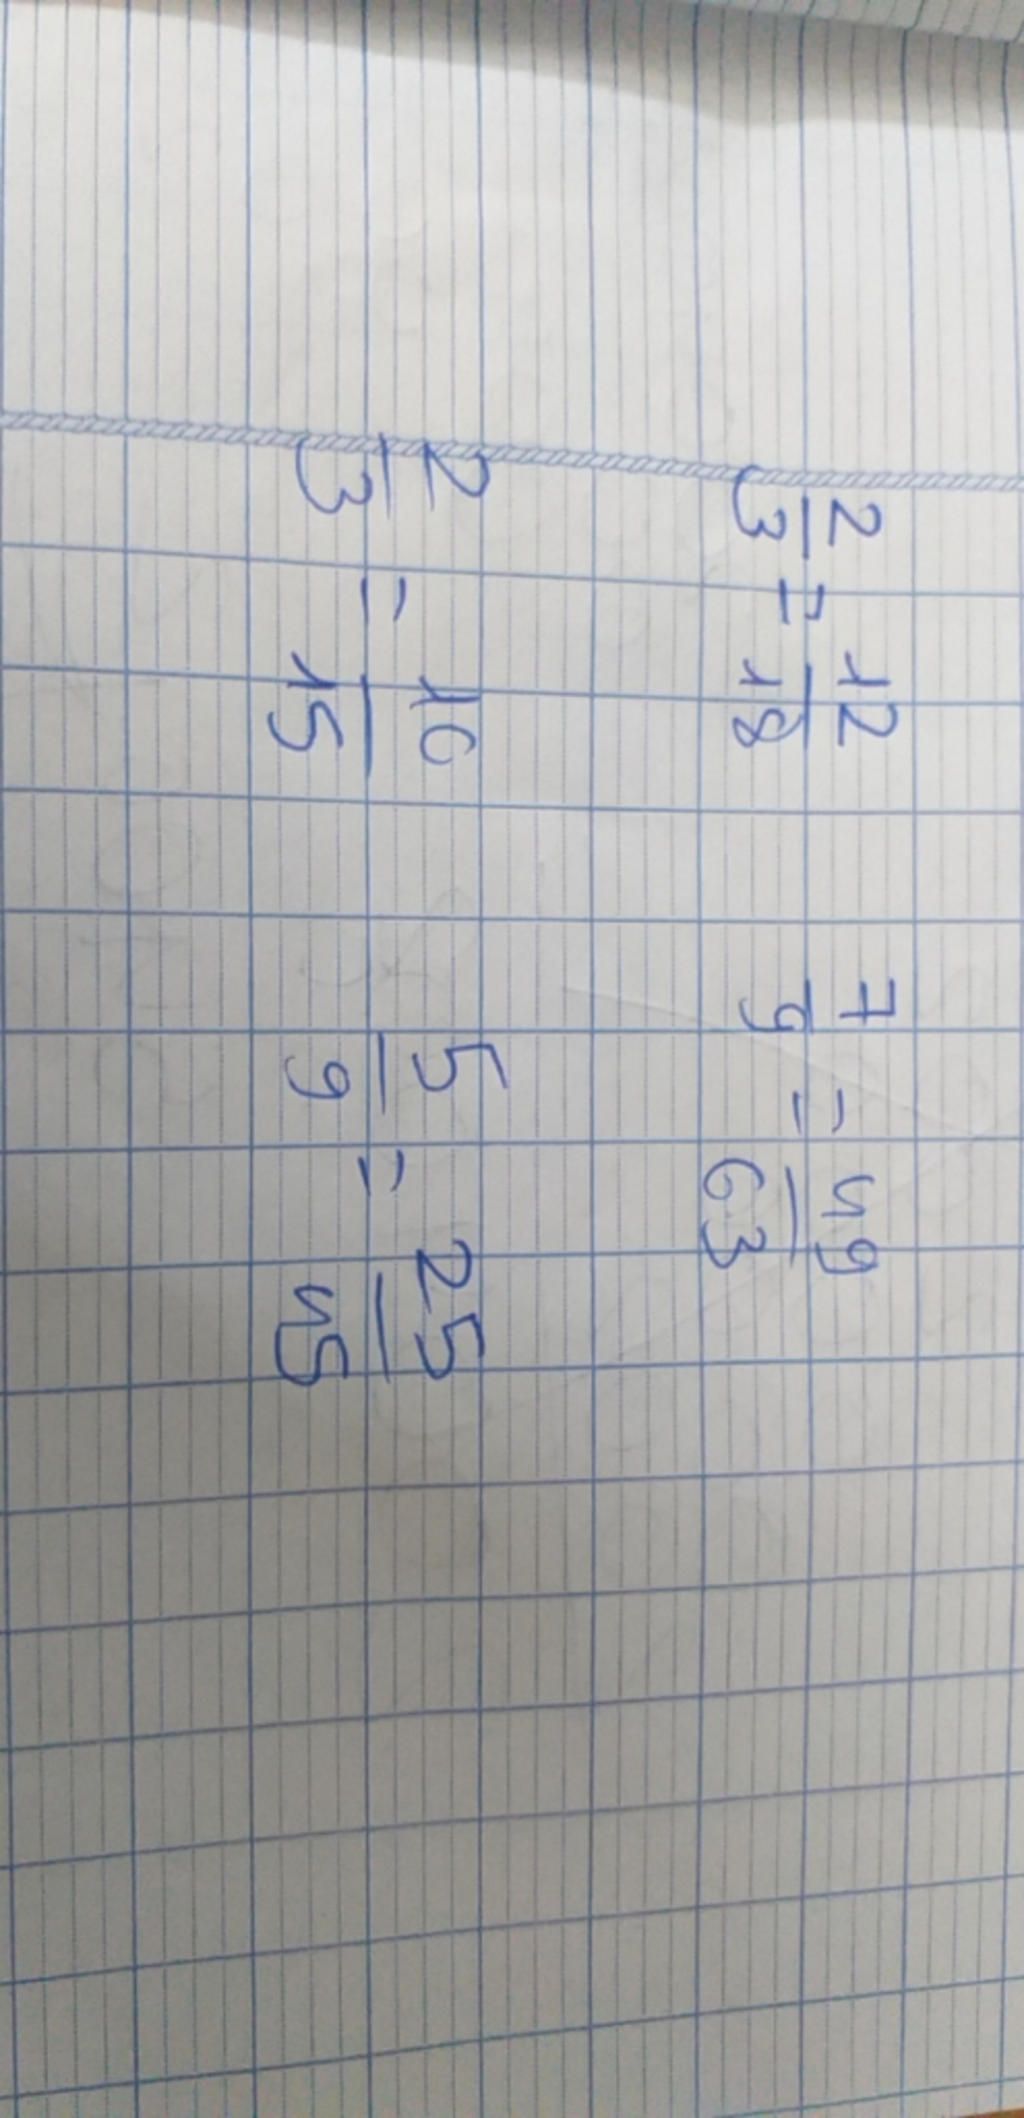 2/3 = 12/18 7/9 = 49/63
2/3 = 10/15 5/9 = 25/45